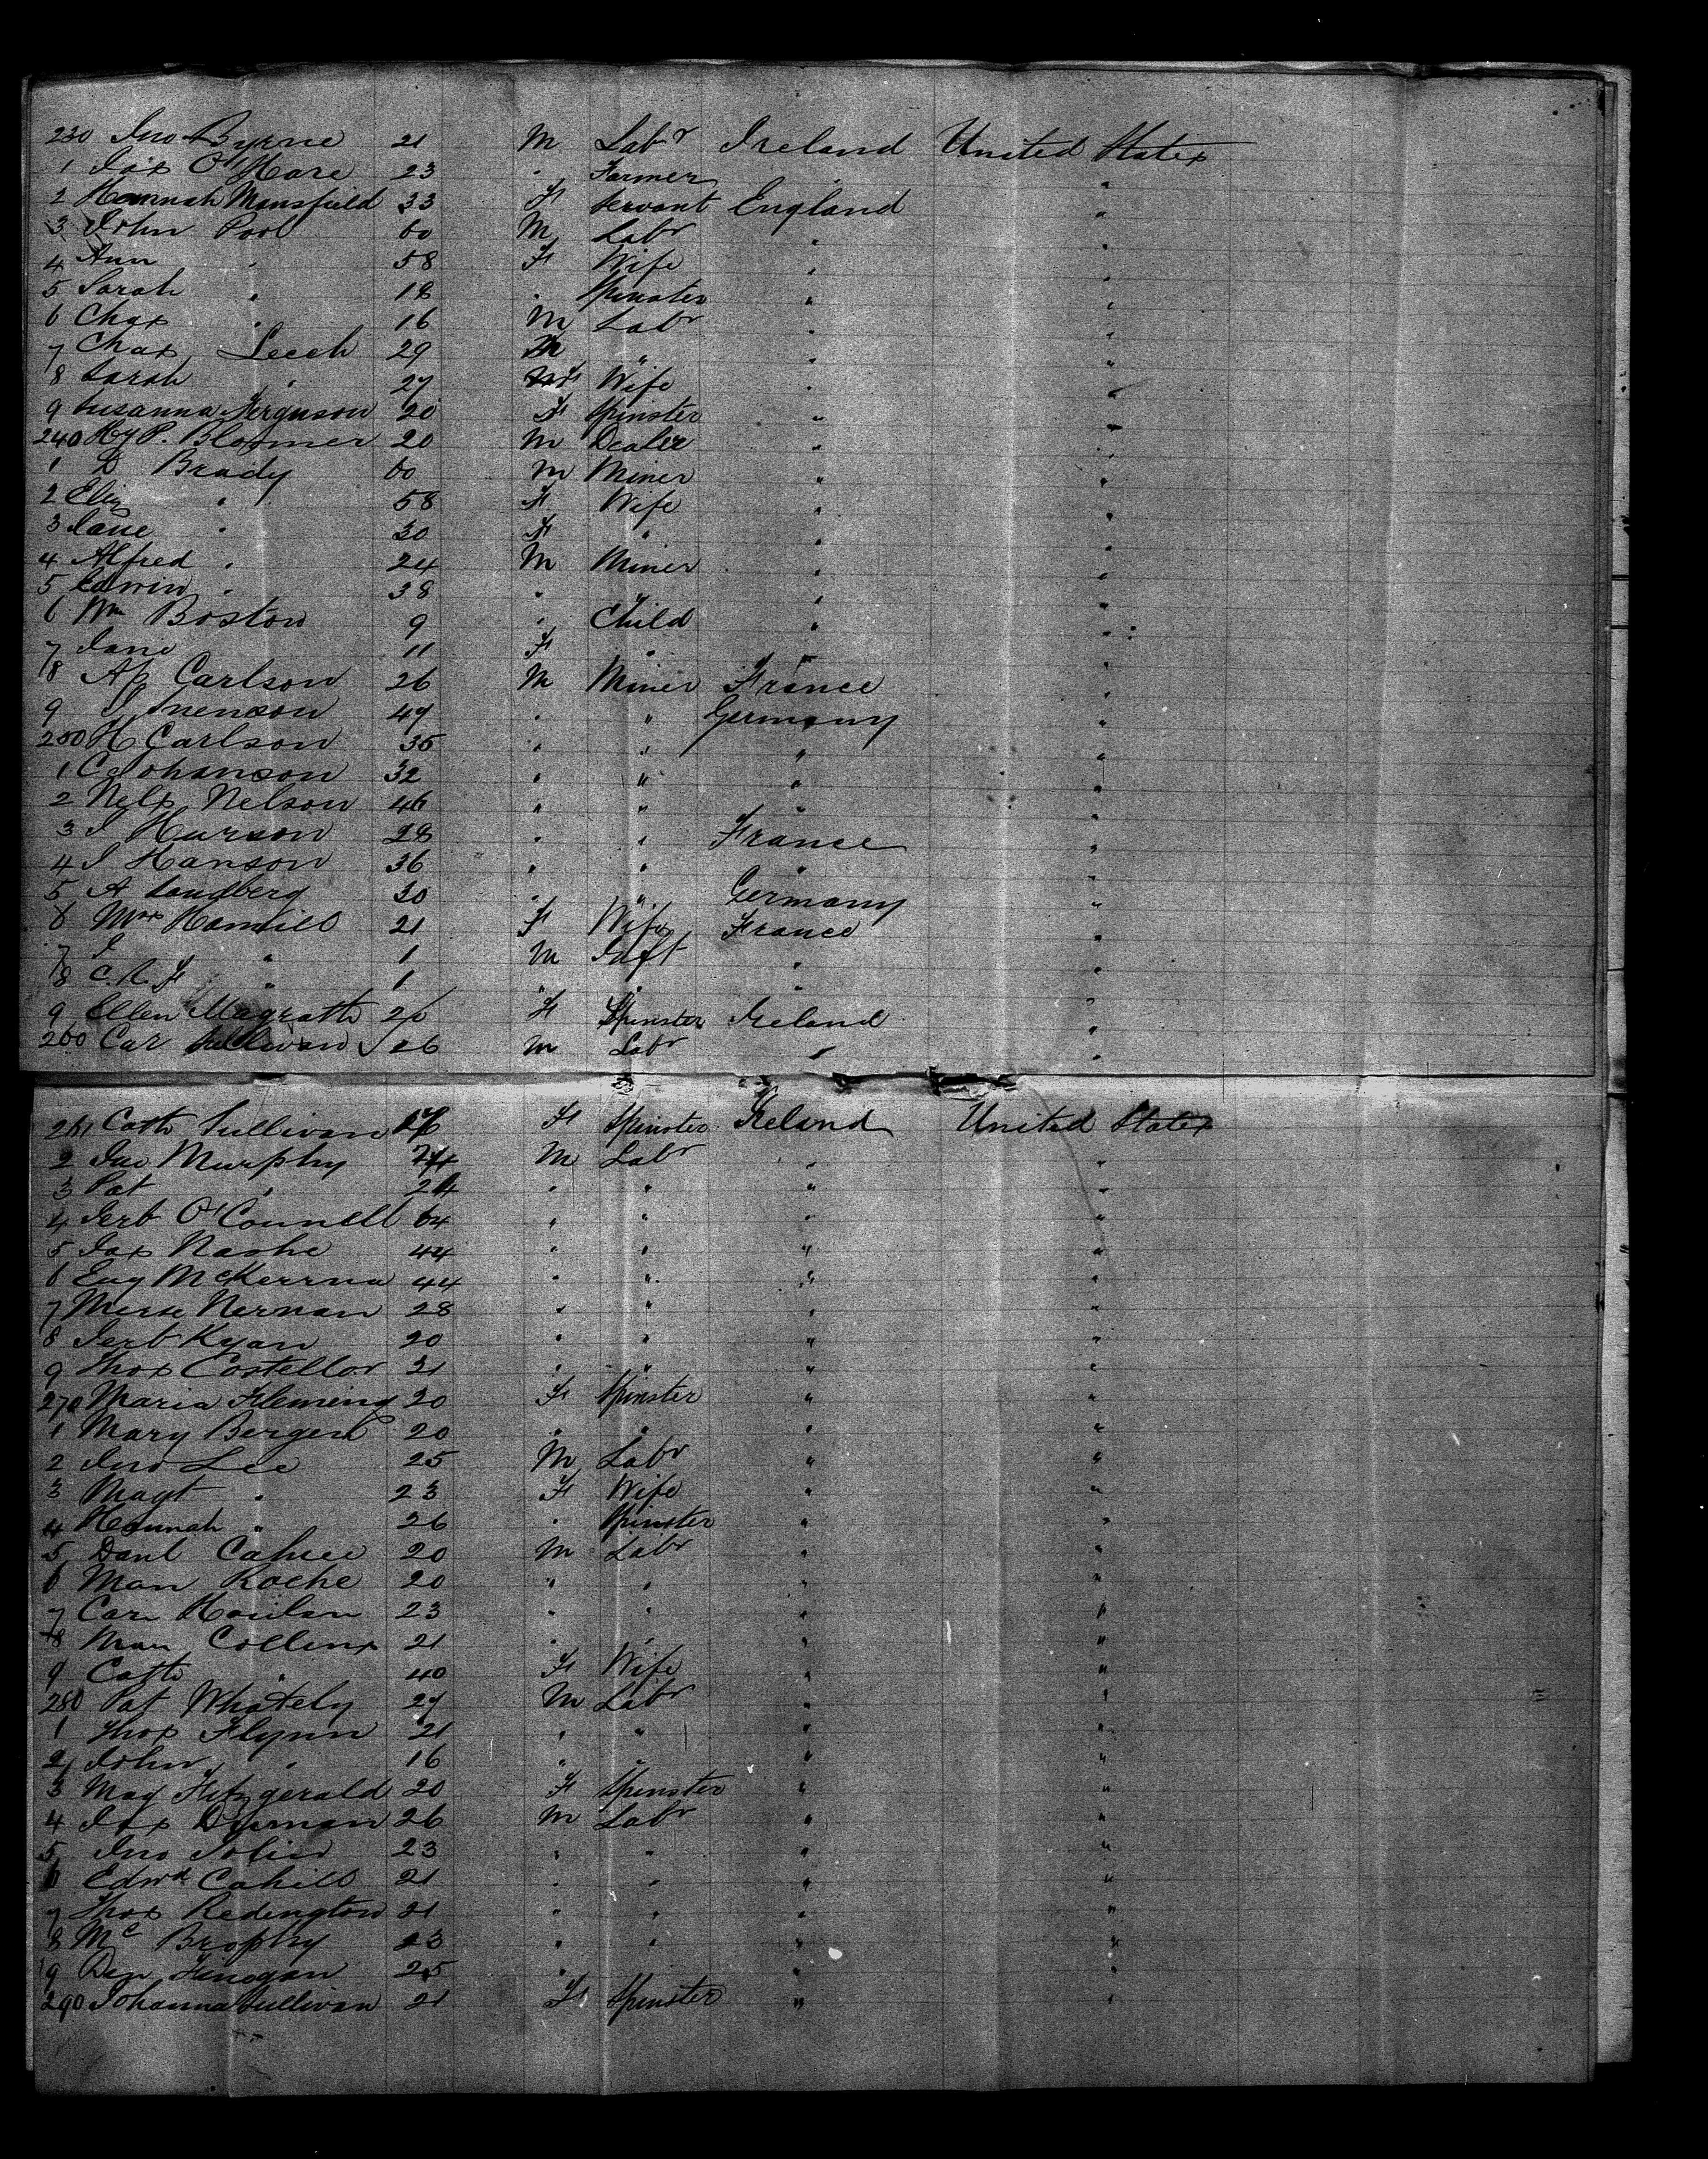 230 Jno Byrne 21 M Labr Ireland United States
1 Jas O'Hare 23 " Farmer " "
2 Hannah Mansfield 33 F Servant England "
3 John Pool 60 M Labr " "
4 Ann " 58 F Wife " "
5 Sarah " 18 " Spinster " "
6 Chas " 16 M Labr " "
7 Chas Leech 29 M " " "
8 Sarah " 27 F Wife " "
9 Susanna Ferguson 20 F Spinster " "
240 Hy P. Bloomer 20 M Dealer " "
1 Brady 60 M Miner " "
2 Eliz " 58 F Wife " "
3 Jane " 30 F " " "
4 Alfred " 24 M Miner " "
5 Edwin " 38 " " " "
6 Wm Boston 9 " Child " "
7 Jane 11 F " " "
8 Ap Carlson 26 M Miner France "
9 49 " " Germany "
250 H Carlson 35 " " " "
1 C Johanson 32 " " " "
2 Nels Nelson 46 " " " "
3 J Hurson 28 " " France "
4 J Hanson 36 " " " "
5 A Sandberg 30 " " Germany "
6 Mrs Hamill 21 F Wife France "
7 J " 1 M Inft " "
8 C.R.F " 1 " " " "
9 Ellen Magrath 26 F Spinster Ireland "
260 Car Sullivan 26 M Labr " "
261 Cath Sullivan F Spinster Ireland United States
2 Jno Murphy 24 M Labr " "
3 Pat " 24 " " " "
4 Jerh O'Connell 64 " " " "
5 Jas Nashe 44 " " " "
6 Eug McKerrna 44 " " " "
7 Nernan 28 " " " "
8 Jerh Ryan 20 " " " "
9 Thos Costellor 21 " " " "
270 Maria Fleming 20 F Spinster " "
1 Mary Bergen 20 " " " "
2 Jno Lee 25 M Labr " "
3 Magt " 23 F Wife " "
4 Hannah " 26 " Spinster " "
5 Danl Cahill 20 M Labr " "
6 Man Roche 20 " " " "
7 Car 23 " " " "
8 Man Collins 21 " " " "
9 Cath " 40 F Wife " "
280 Pat Whately 27 M Labr " "
1 Thos Flynn 21 " " " "
2 John " 16 " " " "
3 Mag Fitzgerald 20 F Spinster " "
4 Jas 26 M Labr " "
5 Jno 23 " " " "
6 Edwd Cahill 21 " " " "
7 Thos Redington 21 " " " "
8 Mc Brophy 23 " " " "
9 Den Finogan 25 " " " "
290 Johanna Sullivan 21 F Spinster " "